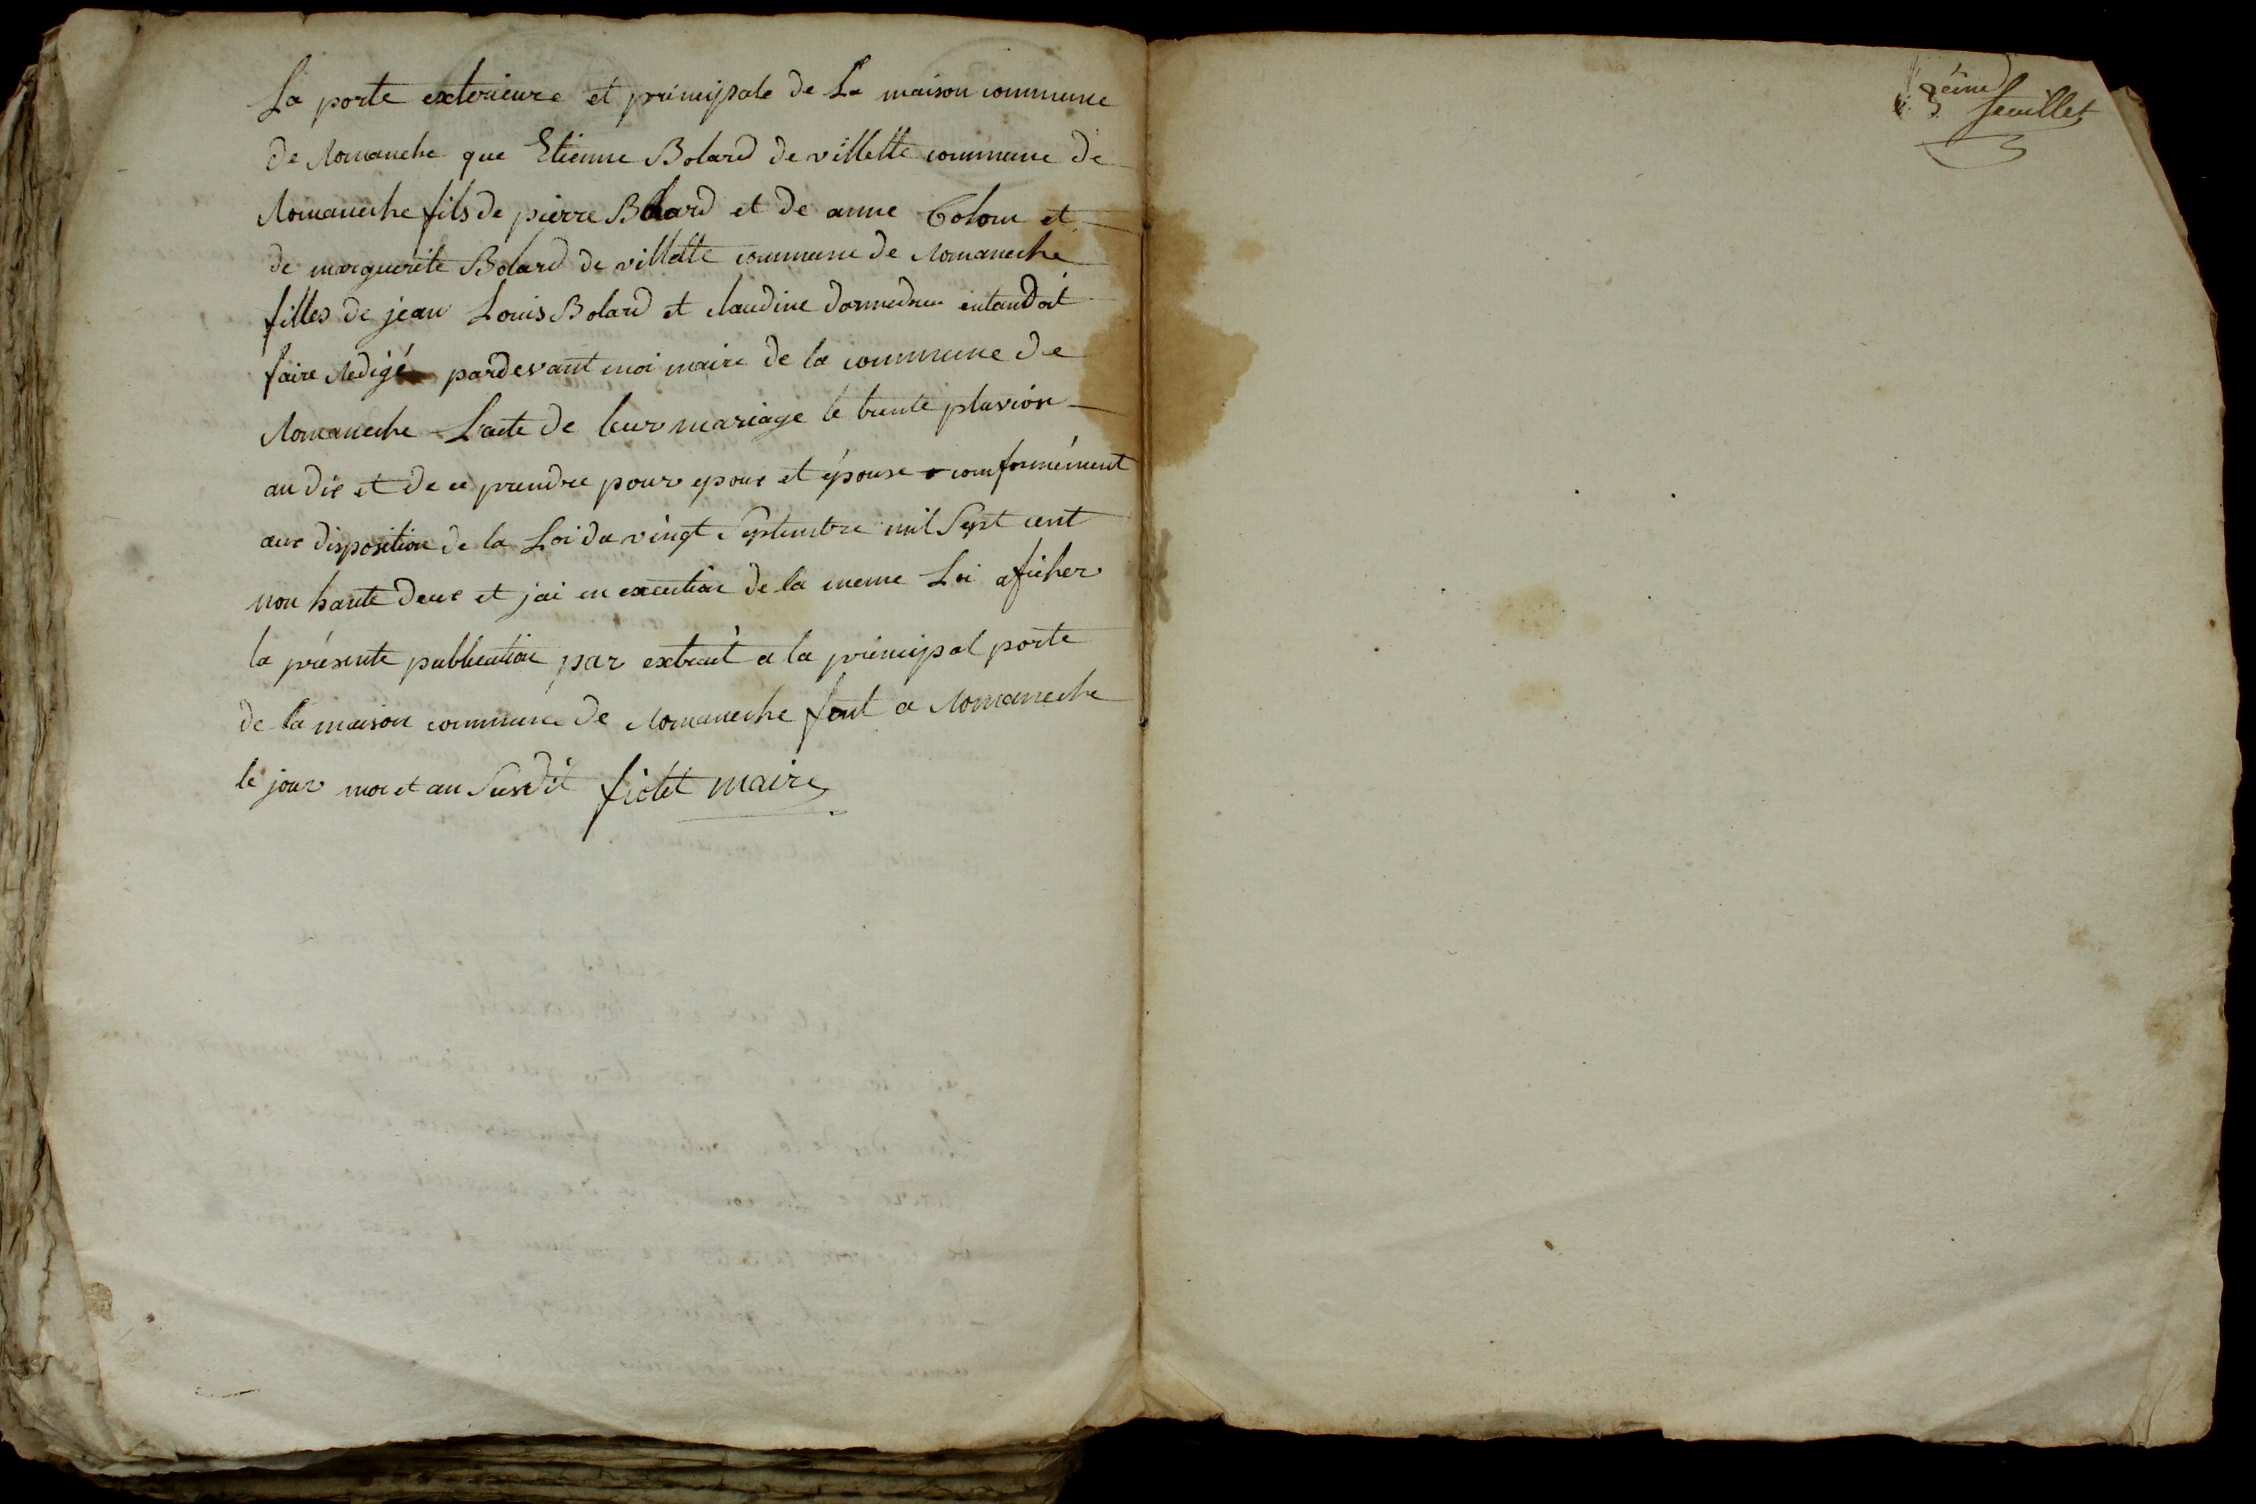 La porte exterieure et principale de La maison commune
de Romaneche que Etienne Bolard de villette commune de
Romaneche fils de pierre Bolard et de anne Colom et
de marguerite Bolard de villette commune de Romaneche
filles de jean Louis Bolard et claudine entandoit
faire Redigé pardevant moi maire de la commune de
Romaneche L'acte de leur mariage le trente pluviôse
an dix et de ce prendre pour epoux et épouse conformément
aux disposition de la Loi du vingt Septembre mil Sept cent
nonhante deux et jai en execution de la meme Loi aficher
la présente publication par extrait a la principal porte
de la maison commune de Romaneche fait a Romaneche
le jour moi et an Susdit fidet maire
feuillet